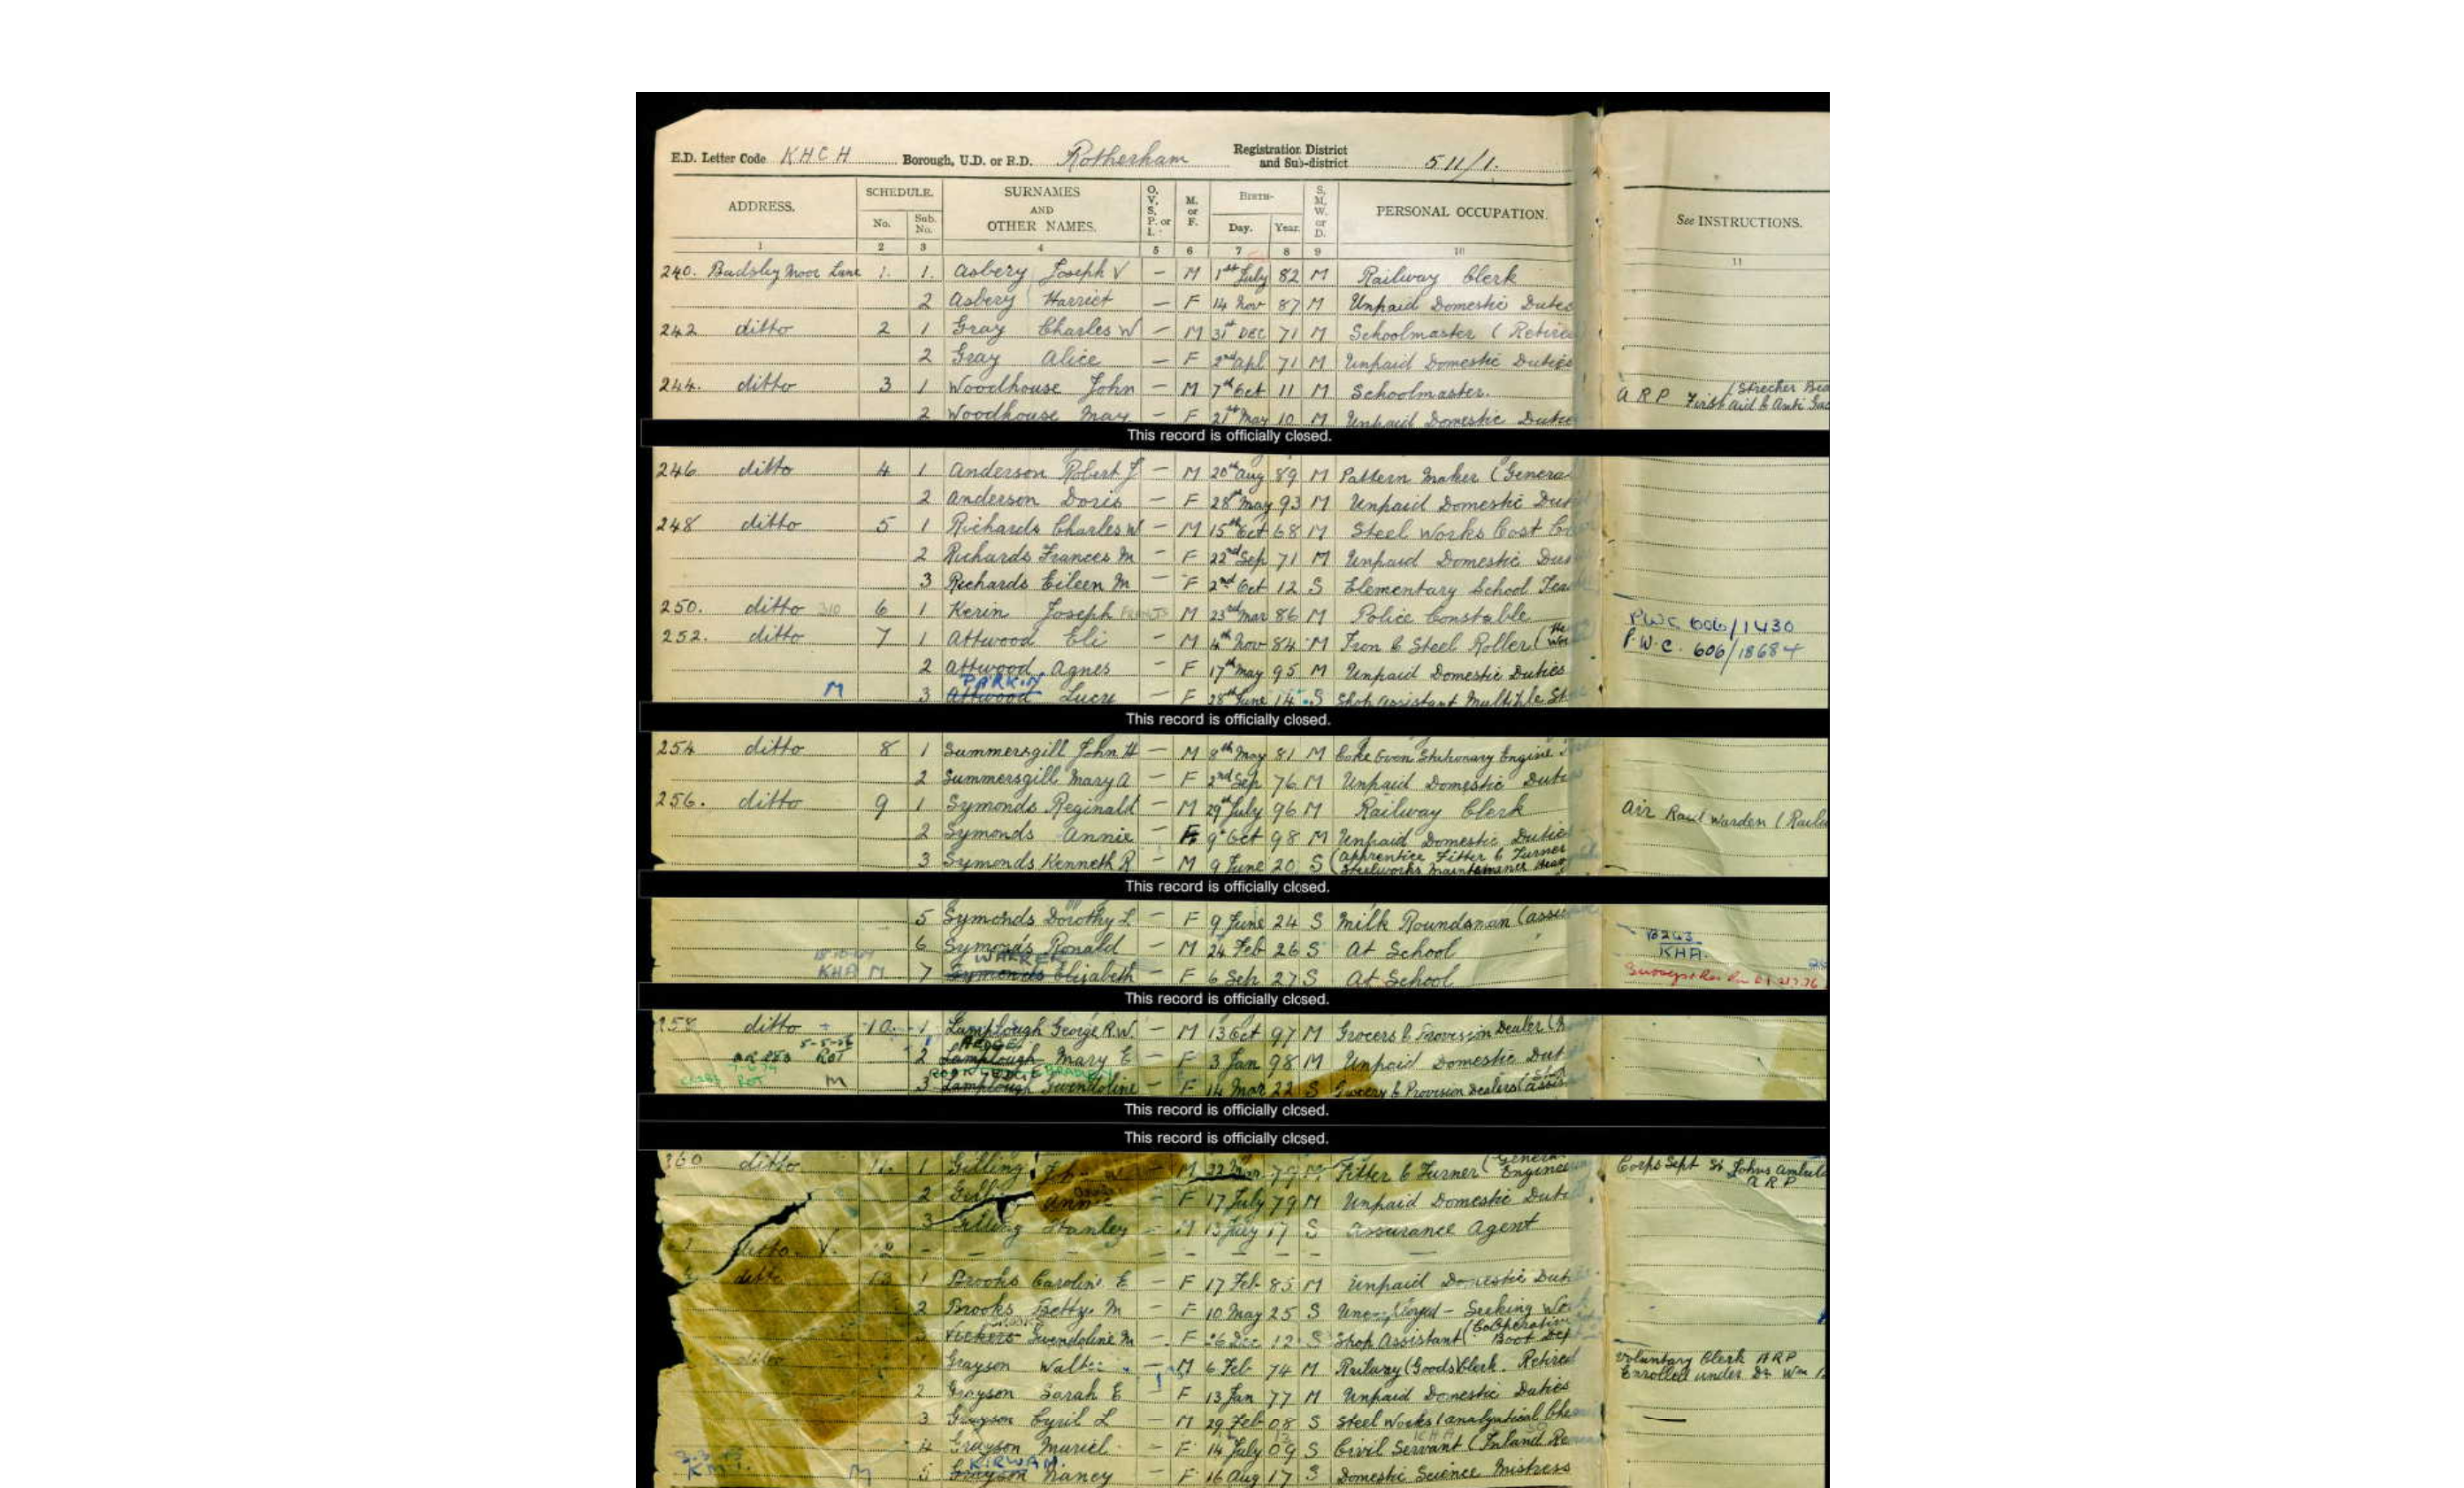 E.D. Letter Code KHCH Borough, U.D. or R.D. Rotherham Registration District and Sub-district 511/1.
ADDRESS. SCHEDULE. No. Sub. No. SURNAMES AND OTHER NAMES. O, V, S, P. or I. M. or F. BIRTH- Day. Year. S, M, W, or D. PERSONAL OCCUPATION. See INSTRUCTIONS.
1 2 3 4 5 6 7 8 9 10 11
240. Badsley Moor Lane 1. 1. Asbery Joseph V – M 1st July 82 M Railway Clerk
2 Asbery Harriet – F 14 Nov 87 M Unpaid Domestic Duties
242 ditto 2 1 Gray Charles W – M 31st DEC 71 M Schoolmaster (Retired
2 Gray Alice – F 2nd Apl 71 M Unpaid Domestic Duties
244. ditto 3 1 Woodhouse John – M 7th Oct 11 M Schoolmaster. A R P (Strecher Bea First Aid & Anti Gas
2 Woodhouse May – F 21st May 10 M Unpaid Domestic Duties
This record is officially closed.
246 ditto 4 1 Anderson Robert J – M 20th Aug 89 M Pattern Maker (General
2 Anderson Doris – F 28th May 93 M Unpaid Domestic Duti
248 ditto 5 1 Richards Charles W – M 15th Oct 68 M Steel Works Cost
2 Richards Frances M – F 22nd Sep 71 M Unpaid Domestic Du
3 Richards Eileen M – F 2nd Oct 12 S Elementary School Tea
250. ditto 310 6 1 Kerin Joseph FRANCIS M 23rd Mar 86 M Police Constable PWC 606/1430
252. ditto 7 1 Attwood Eli – M 4th Nov 84 M Iron & Steel Roller ( P.W.C. 606/18684
2 Attwood Agnes – F 17th May 95 M Unpaid Domestic Duties
PARKIN
M 3 Attwood Lucy – F 28th June 14 S Shop Assistant Multiple St
This record is officially closed.
254 ditto 8 1 Summersgill John H – M 8th May 81 M Coke Oven Stationary Engine
2 Summersgill Mary A – F 2nd Sep 76 M Unpaid Domestic Duti
256. ditto 9 1 Symonds Reginald – M 29th July 96 M Railway Clerk Air Raid Warden (Railw
2 Symonds Annie – F 9 Oct 98 M Unpaid Domestic Duties
3 Symonds Kenneth R – M 9 June 20 S (Apprentice Fitter & Turner Steelworks Maintenance Heavy
This record is officially closed.
5 Symonds Dorothy L – F 9 June 24 S Milk Roundsman (assis
6 Symonds Ronald – M 24 Feb 26 S At School B243 KHA.
WALKER
KHA M 7 Symonds Elizabeth – F 6 Sep 27 S At School
This record is officially closed.
258 ditto 10. 1 Lamplough George R.W. – M 13 Oct 97 M Grocers & Provision Dealer
5-5-56 ROT 2 Lamplough Mary E – F 3 Jan 98 M Unpaid Domestic Dut
ROT M 3 Lamplough Gwendoline – F 14 Mar 22 S Grocery & Provision Dealers (assis
This record is officially closed.
This record is officially closed.
260 ditto 11. 1 Gilling W – M 22 M Fitter & Turner (General Engineer Corps Sept St Johns Ambula A R P
2 Annie – F 17 July 79 M Unpaid Domestic Duti
3 Gilling Stanley – M 13 July 17 S Assurance Agent
ditto V. 12 – – – – – – – –
ditto 13 1 Brooks Caroline E – F 17 Feb 85 M Unpaid Domestic Duti
2 Brooks Betty M – F 10 May 25 S Unemployed – Seeking Wo
3 Vickers Gwendoline M – F 26 Dec 12 S Shop Assistant (CoOperative Boot Dep
ditto Grayson Walter – M 6 Feb 74 M Railway (Goods) Clerk. Retired Voluntary Clerk ARP Enrolled under Dr Wm
2 Grayson Sarah E – F 13 Jan 77 M Unpaid Domestic Duties
3 Grayson Cyril L – M 29 Feb 08 S Steel Works (Analytical Che
4 Grayson Muriel – F 14 July 09 S Civil Servant (Inland Re
KIRWAN
M 5 Grayson Nancy – F 16 Aug 17 S Domestic Science Mistress